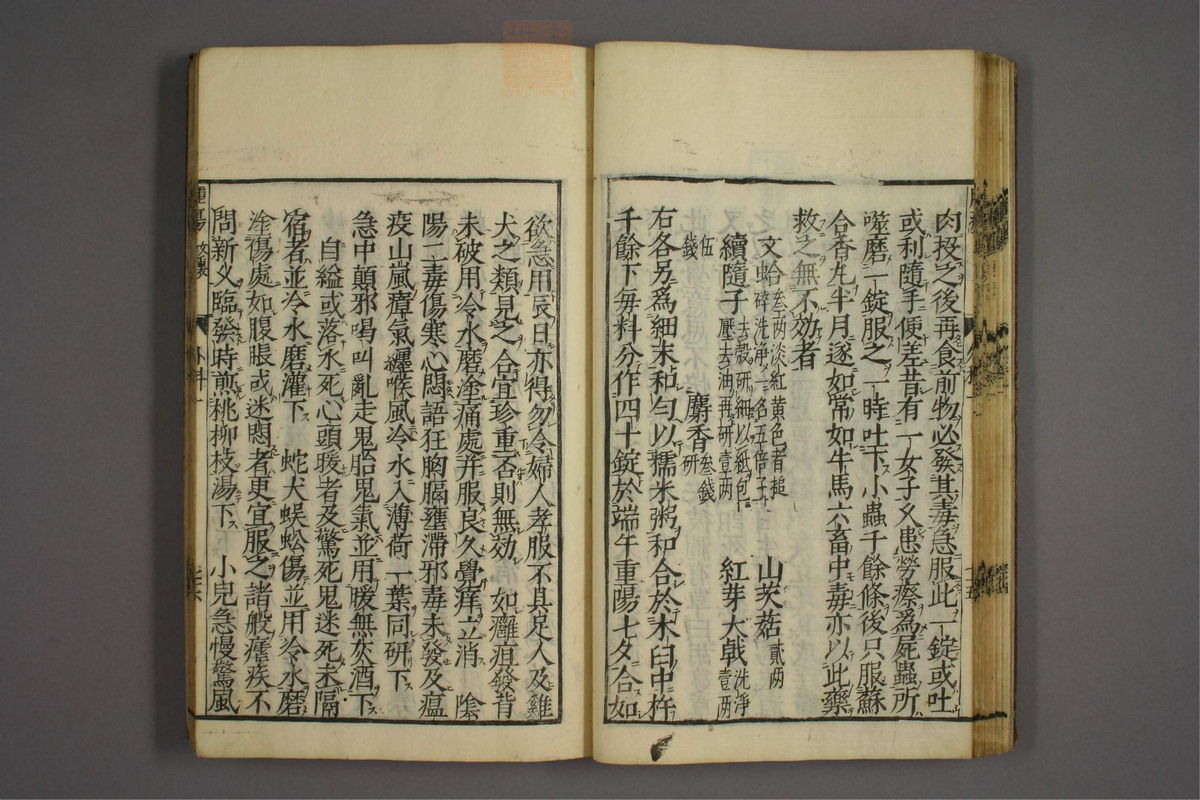 肉投之後再食前物必發其毒急服此一錠或吐
或利隨手便差昔有一女子久患勞瘵為屍蟲所
噬磨一錠服之一時吐下小蟲千餘條後只服蘇
合香丸半月遂如常如牛馬六畜中毒亦以此藥
救之無不効者
文蛤 叁兩淡紅黃色者搥碎洗淨一名五倍子 山茨菇 貳兩
續隨子 去殼研細以紙包壓去油再研壹兩 紅芽大戟 洗淨壹兩伍錢
麝香 叁錢研
右各另為細末和勻以糯米粥和合於木臼中杵
千餘下每料分作四十錠於端午重陽七夕合如
欲急用辰日亦得勿令婦人孝服不具足人及雞
犬之類見之合宜珍重否則無効 如癰疽發背
未破用冷水磨塗痛處并服良久覺痒立消 陰
陽二毒傷寒心悶語狂胸膈壅滯邪毒未發及瘟
疫山嵐瘴氣纏喉風冷水入薄荷一葉同研下
急中顛邪喝叫亂走鬼胎鬼氣並用暖無灰酒下
自縊或落水死心頭暖者及驚死鬼迷死未隔
宿者並冷水磨灌下 蛇犬蜈蚣傷並用冷水磨
塗傷處如腹脹或迷悶者更宜服之諸般瘧疾不
問新久臨發時煎桃柳枝湯下 小兒急慢驚風
腫瘍
外科一